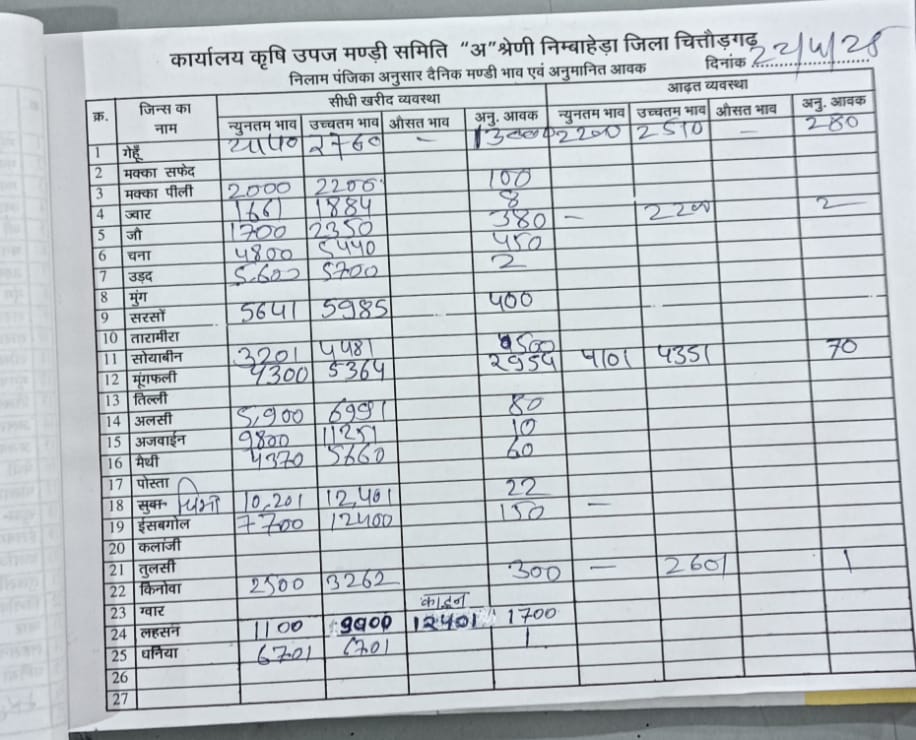 कार्यालय कृषि उपज मण्डी समिति "अ" श्रेणी निम्बाहेड़ा जिला चित्तौड़गढ़
निलाम पंजिका अनुसार दैनिक मण्डी भाव एवं अनुमानित आवक दिनांक 22/4/25
क्र. जिन्स का नाम सीधी खरीद व्यवस्था आढ़त व्यवस्था
न्युनतम भाव उच्चतम भाव औसत भाव अनु. आवक न्युनतम भाव उच्चतम भाव औसत भाव अनु. आवक
1 गेहूँ 2760 – 13000 2200 2510 – 280
2 मक्का सफेद
3 मक्का पीली 2000 2200 100
4 ज्वार 1661 1884 8
5 जौ 1700 2350 380 – 2200 2
6 चना 4800 5440 450
7 उड़द 5600 5700 2
8 मुंग
9 सरसों 5641 5985 400
10 तारामीरा
11 सोयाबीन 3201 4481
12 मूंगफली 4300 5364 2954 4101 4351 70
13 तिल्ली
14 अलसी 5,900 6991 80
15 अजवाईन 9800 11251 10
16 मैथी 4370 5660 60
17 पोस्ता
18 सुवा 10,201 12,401 22
19 ईसबगोल 7700 12400 150 –
20 कलांजी
21 तुलसी
22 किनोवा 2500 3262 300 – 2601 1
23 ग्वार
24 लहसन 1100 9900 12401 1700
25 धनिया 6701 6701 1
26
27